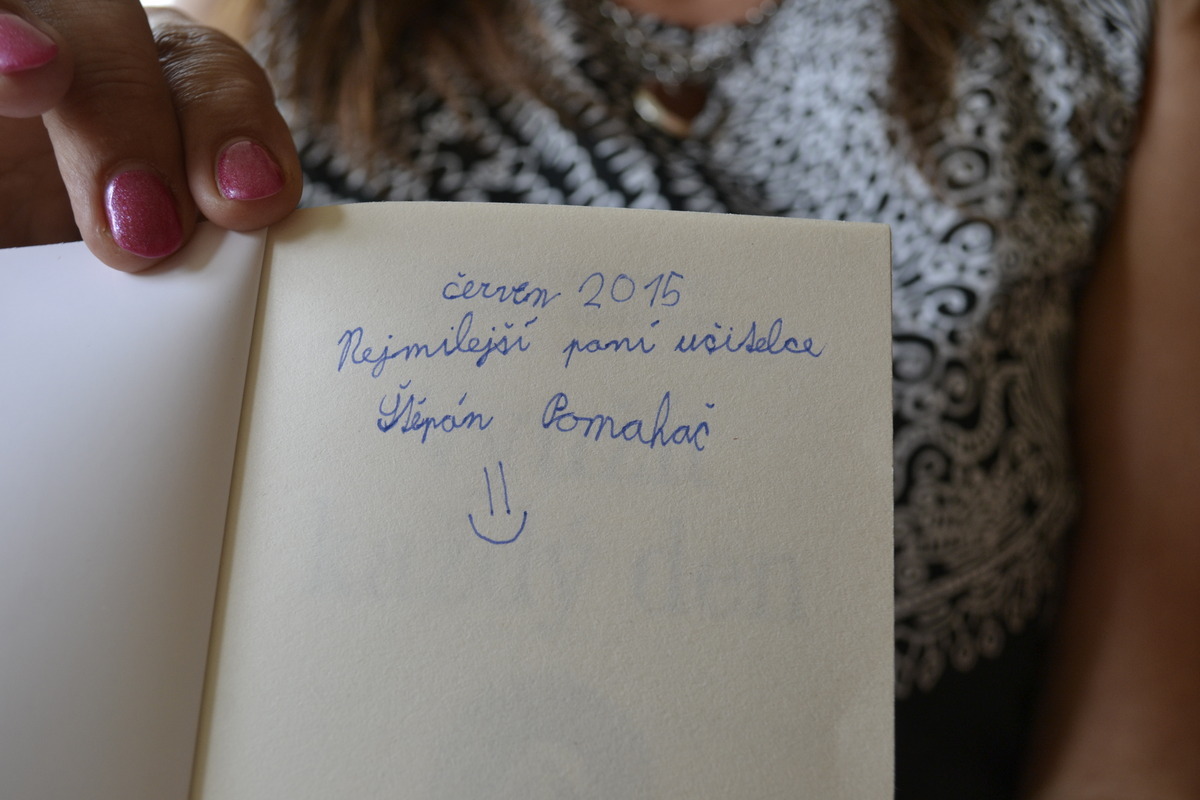 červen 2015
Nejmilejší paní učitelce
Štěpán Pomahač